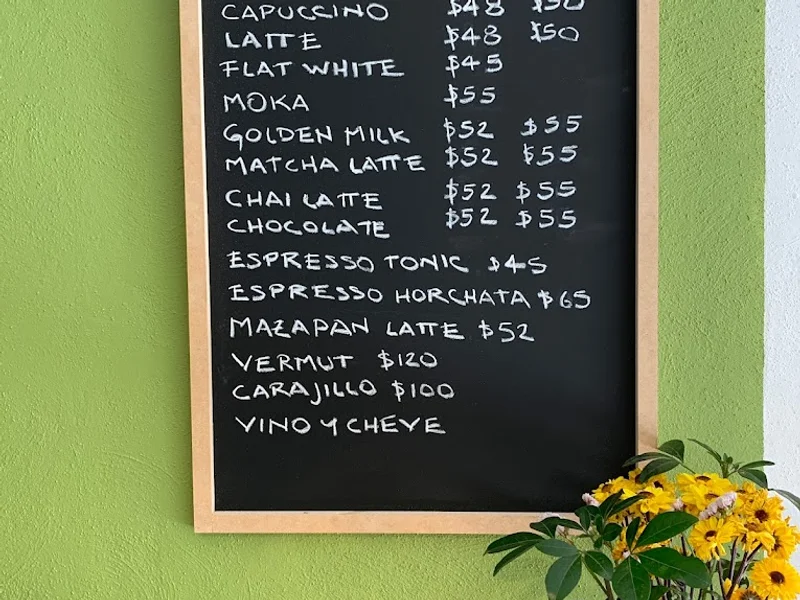 CAPUCCINO $48 $50
LATTE $48 $50
FLAT WHITE $45
MOKA $55
GOLDEN MILK $52 $55
MATCHA LATTE $52 $55
CHAI LATTE $52 $55
CHOCOLATE $52 $55
ESPRESSO TONIC $45
ESPRESSO HORCHATA $65
MAZAPAN LATTE $52
VERMUT $120
CARAJILLO $100
VINO Y CHEVE